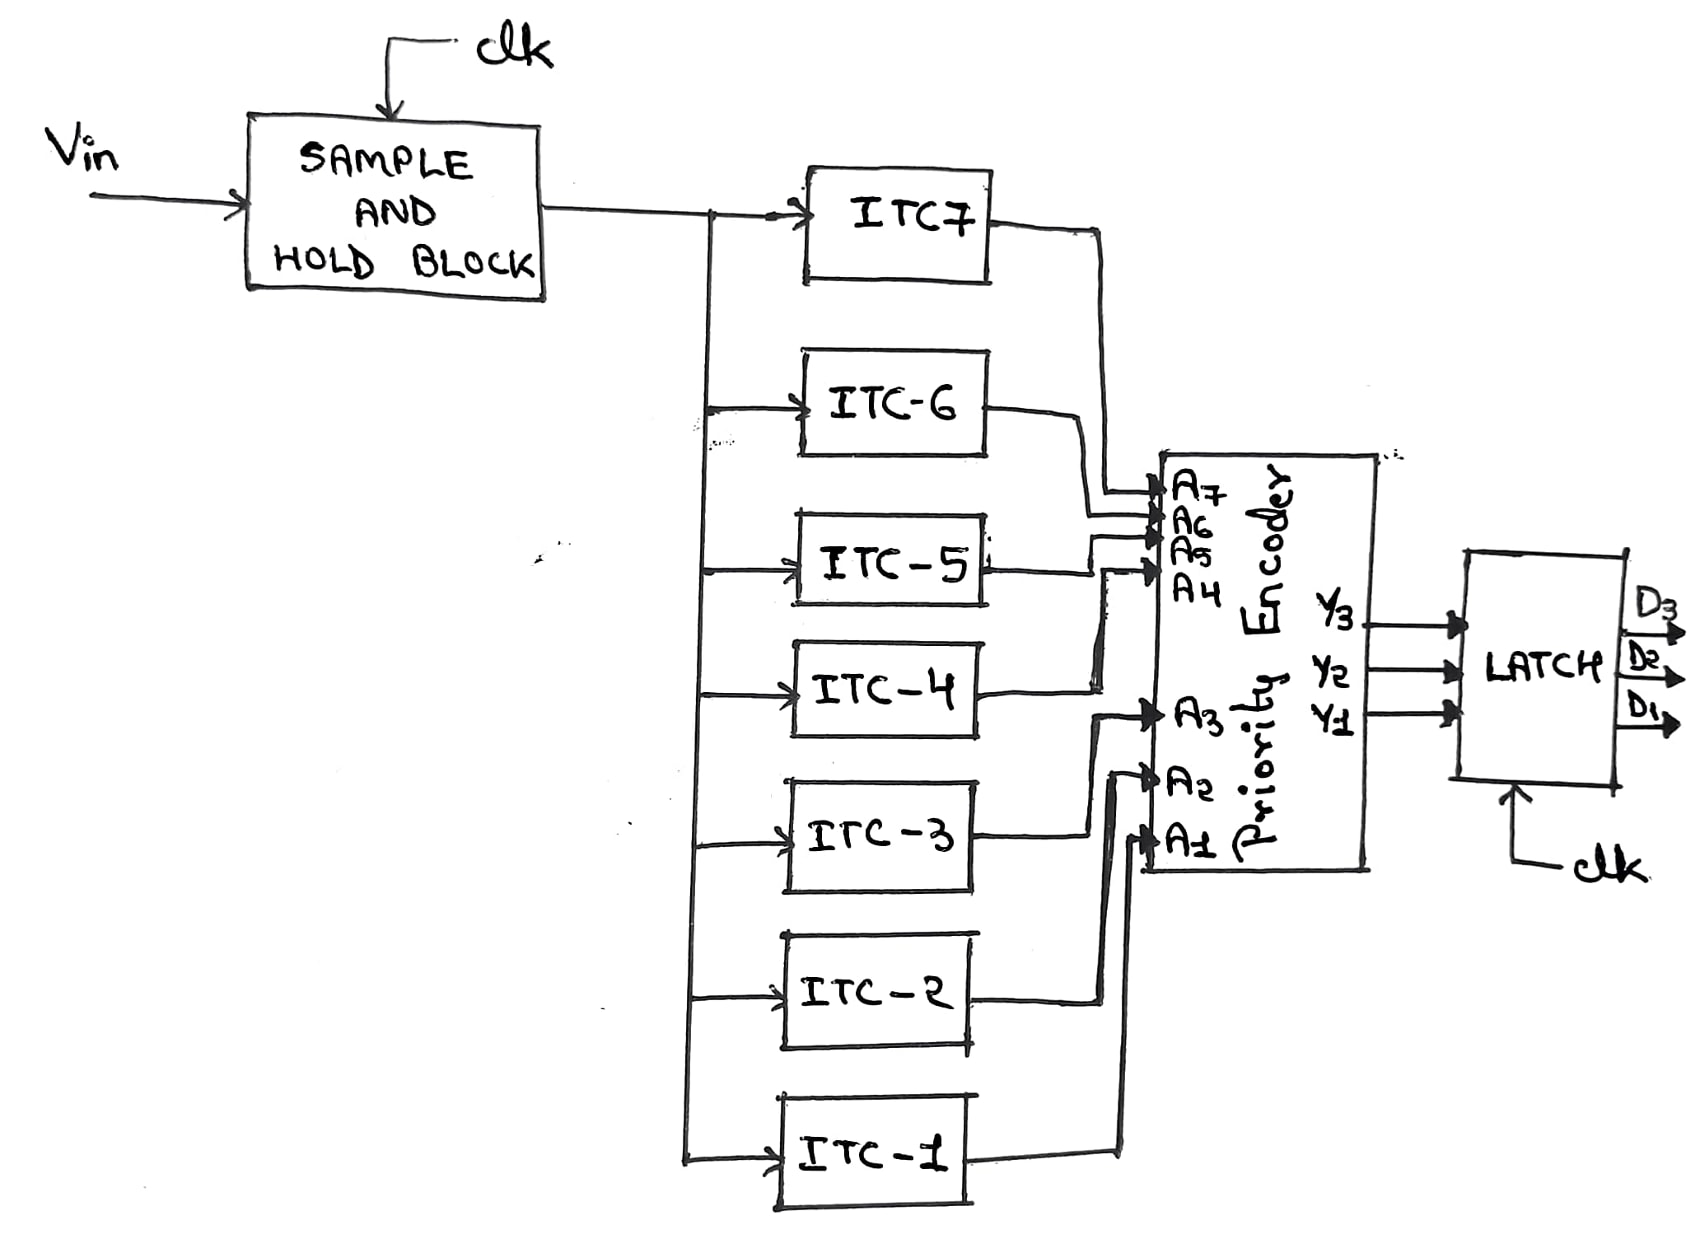 clk
Vin
SAMPLE
AND
HOLD BLOCK
ITC7
ITC-6
ITC-5
ITC-4
ITC-3
ITC-2
ITC-1
A7
A6
A5
A4
A3
A2
A1
Priority Encoder
Y3
Y2
Y1
LATCH
D3
D2
D1
clk